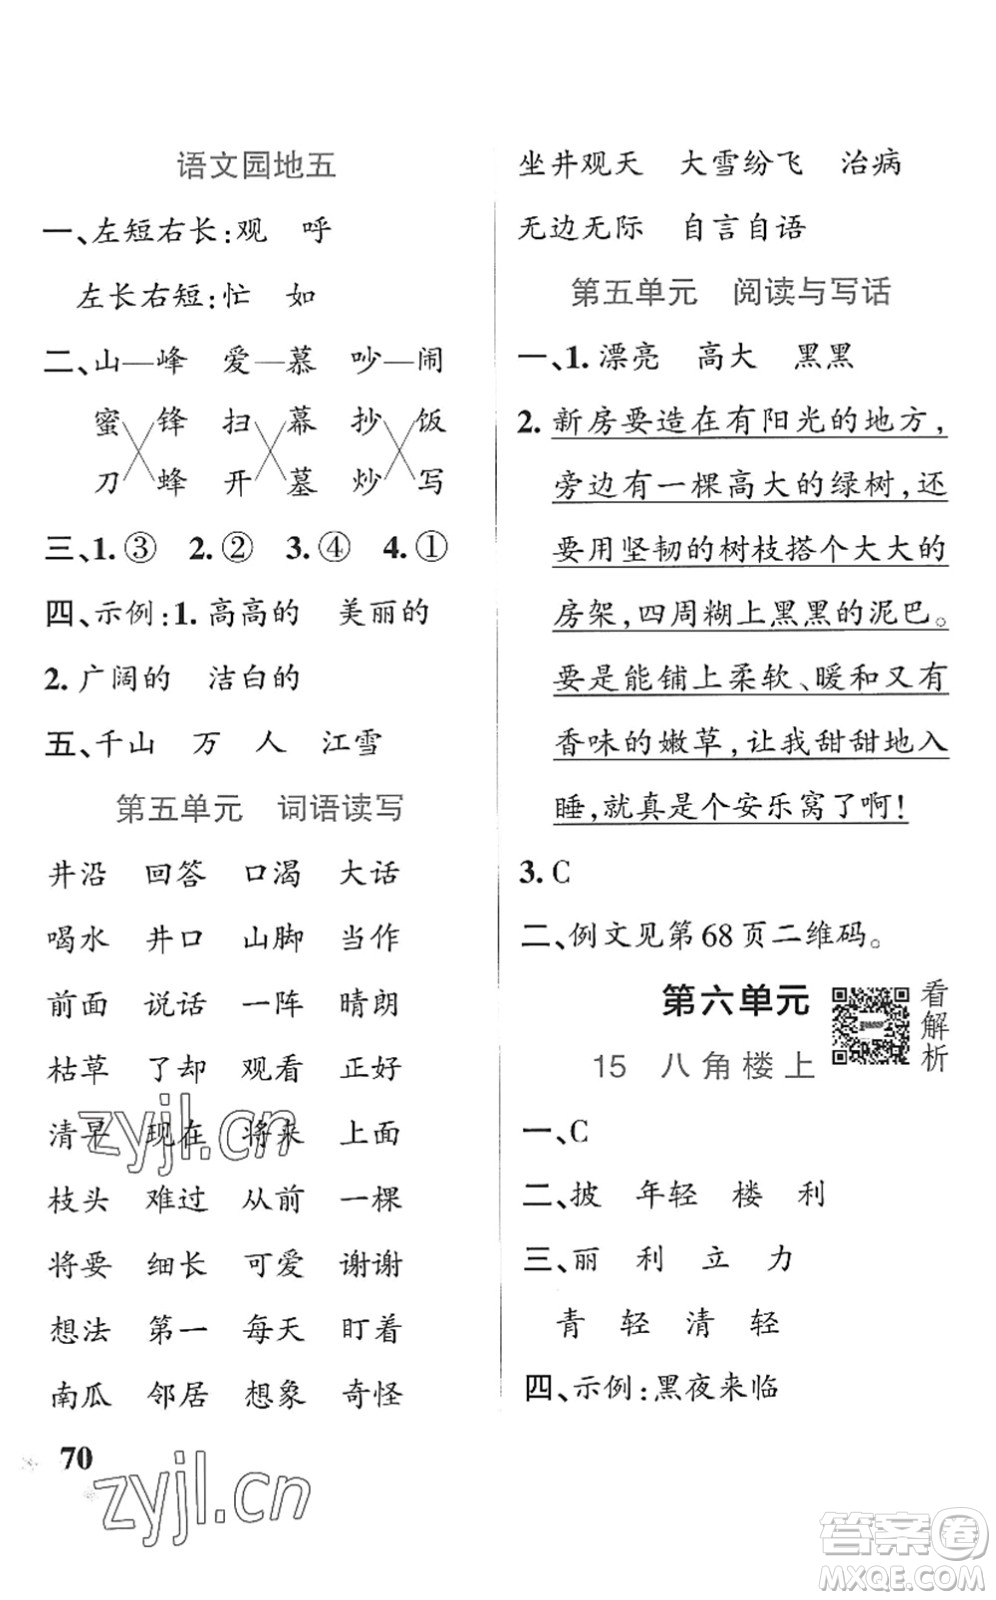 语文园地五
一、左短右长:观 呼
左长右短:忙 如
二、山—峰 爱—慕 吵—闹
蜜 锋 扫 幕 抄 饭
刀 蜂 开 墓 炒 写
三、1.③ 2.② 3.④ 4.①
四、示例:1.高高的 美丽的
2.广阔的 洁白的
五、千山 万 人 江雪
第五单元 词语读写
井沿 回答 口渴 大话
喝水 井口 山脚 当作
前面 说话 一阵 晴朗
枯草 了却 观看 正好
清晨 现在 将来 上面
枝头 难过 从前 一棵
将要 细长 可爱 谢谢
想法 第一 每天 盯着
南瓜 邻居 想象 奇怪
70
坐井观天 大雪纷飞 治病
无边无际 自言自语
第五单元 阅读与写话
一、1.漂亮 高大 黑黑
2.新房要造在有阳光的地方,
旁边有一棵高大的绿树,还
要用坚韧的树枝搭个大大的
房架,四周糊上黑黑的泥巴。
要是能铺上柔软、暖和又有
香味的嫩草,让我甜甜地入
睡,就真是个安乐窝了啊!
3.C
二、例文见第68页二维码。
第六单元
看解析
15 八角楼上
一、C
二、披 年轻 楼 利
三、丽 利 立 力
青 轻 清 轻
四、示例:黑夜来临
zyjl.cn
zyjl.cn
答案卷
MXQE.COM